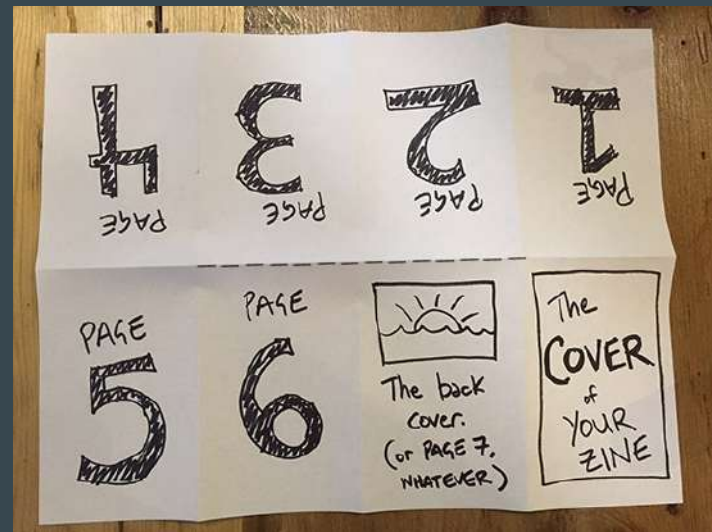 PAGE
4
PAGE
3
PAGE
2
PAGE
1
PAGE
5
PAGE
6
The back
cover.
(or PAGE 7,
WHATEVER)
The
COVER
of
YOUR
ZINE